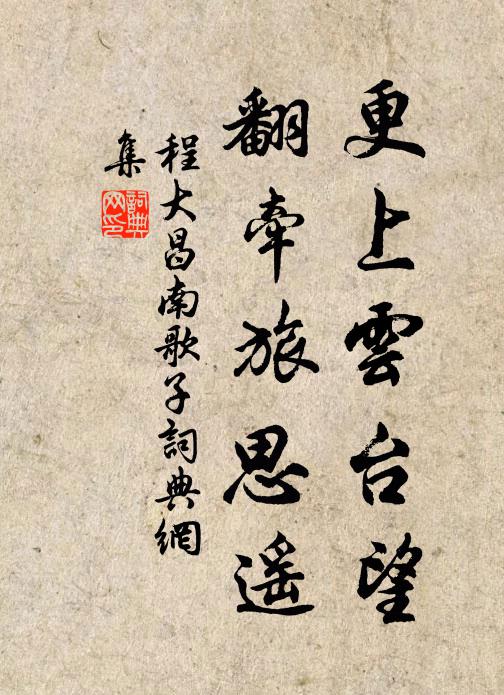 更上雲台望
翻牽旅思遥
程大昌南歌子詞典網
集
詞典
网印